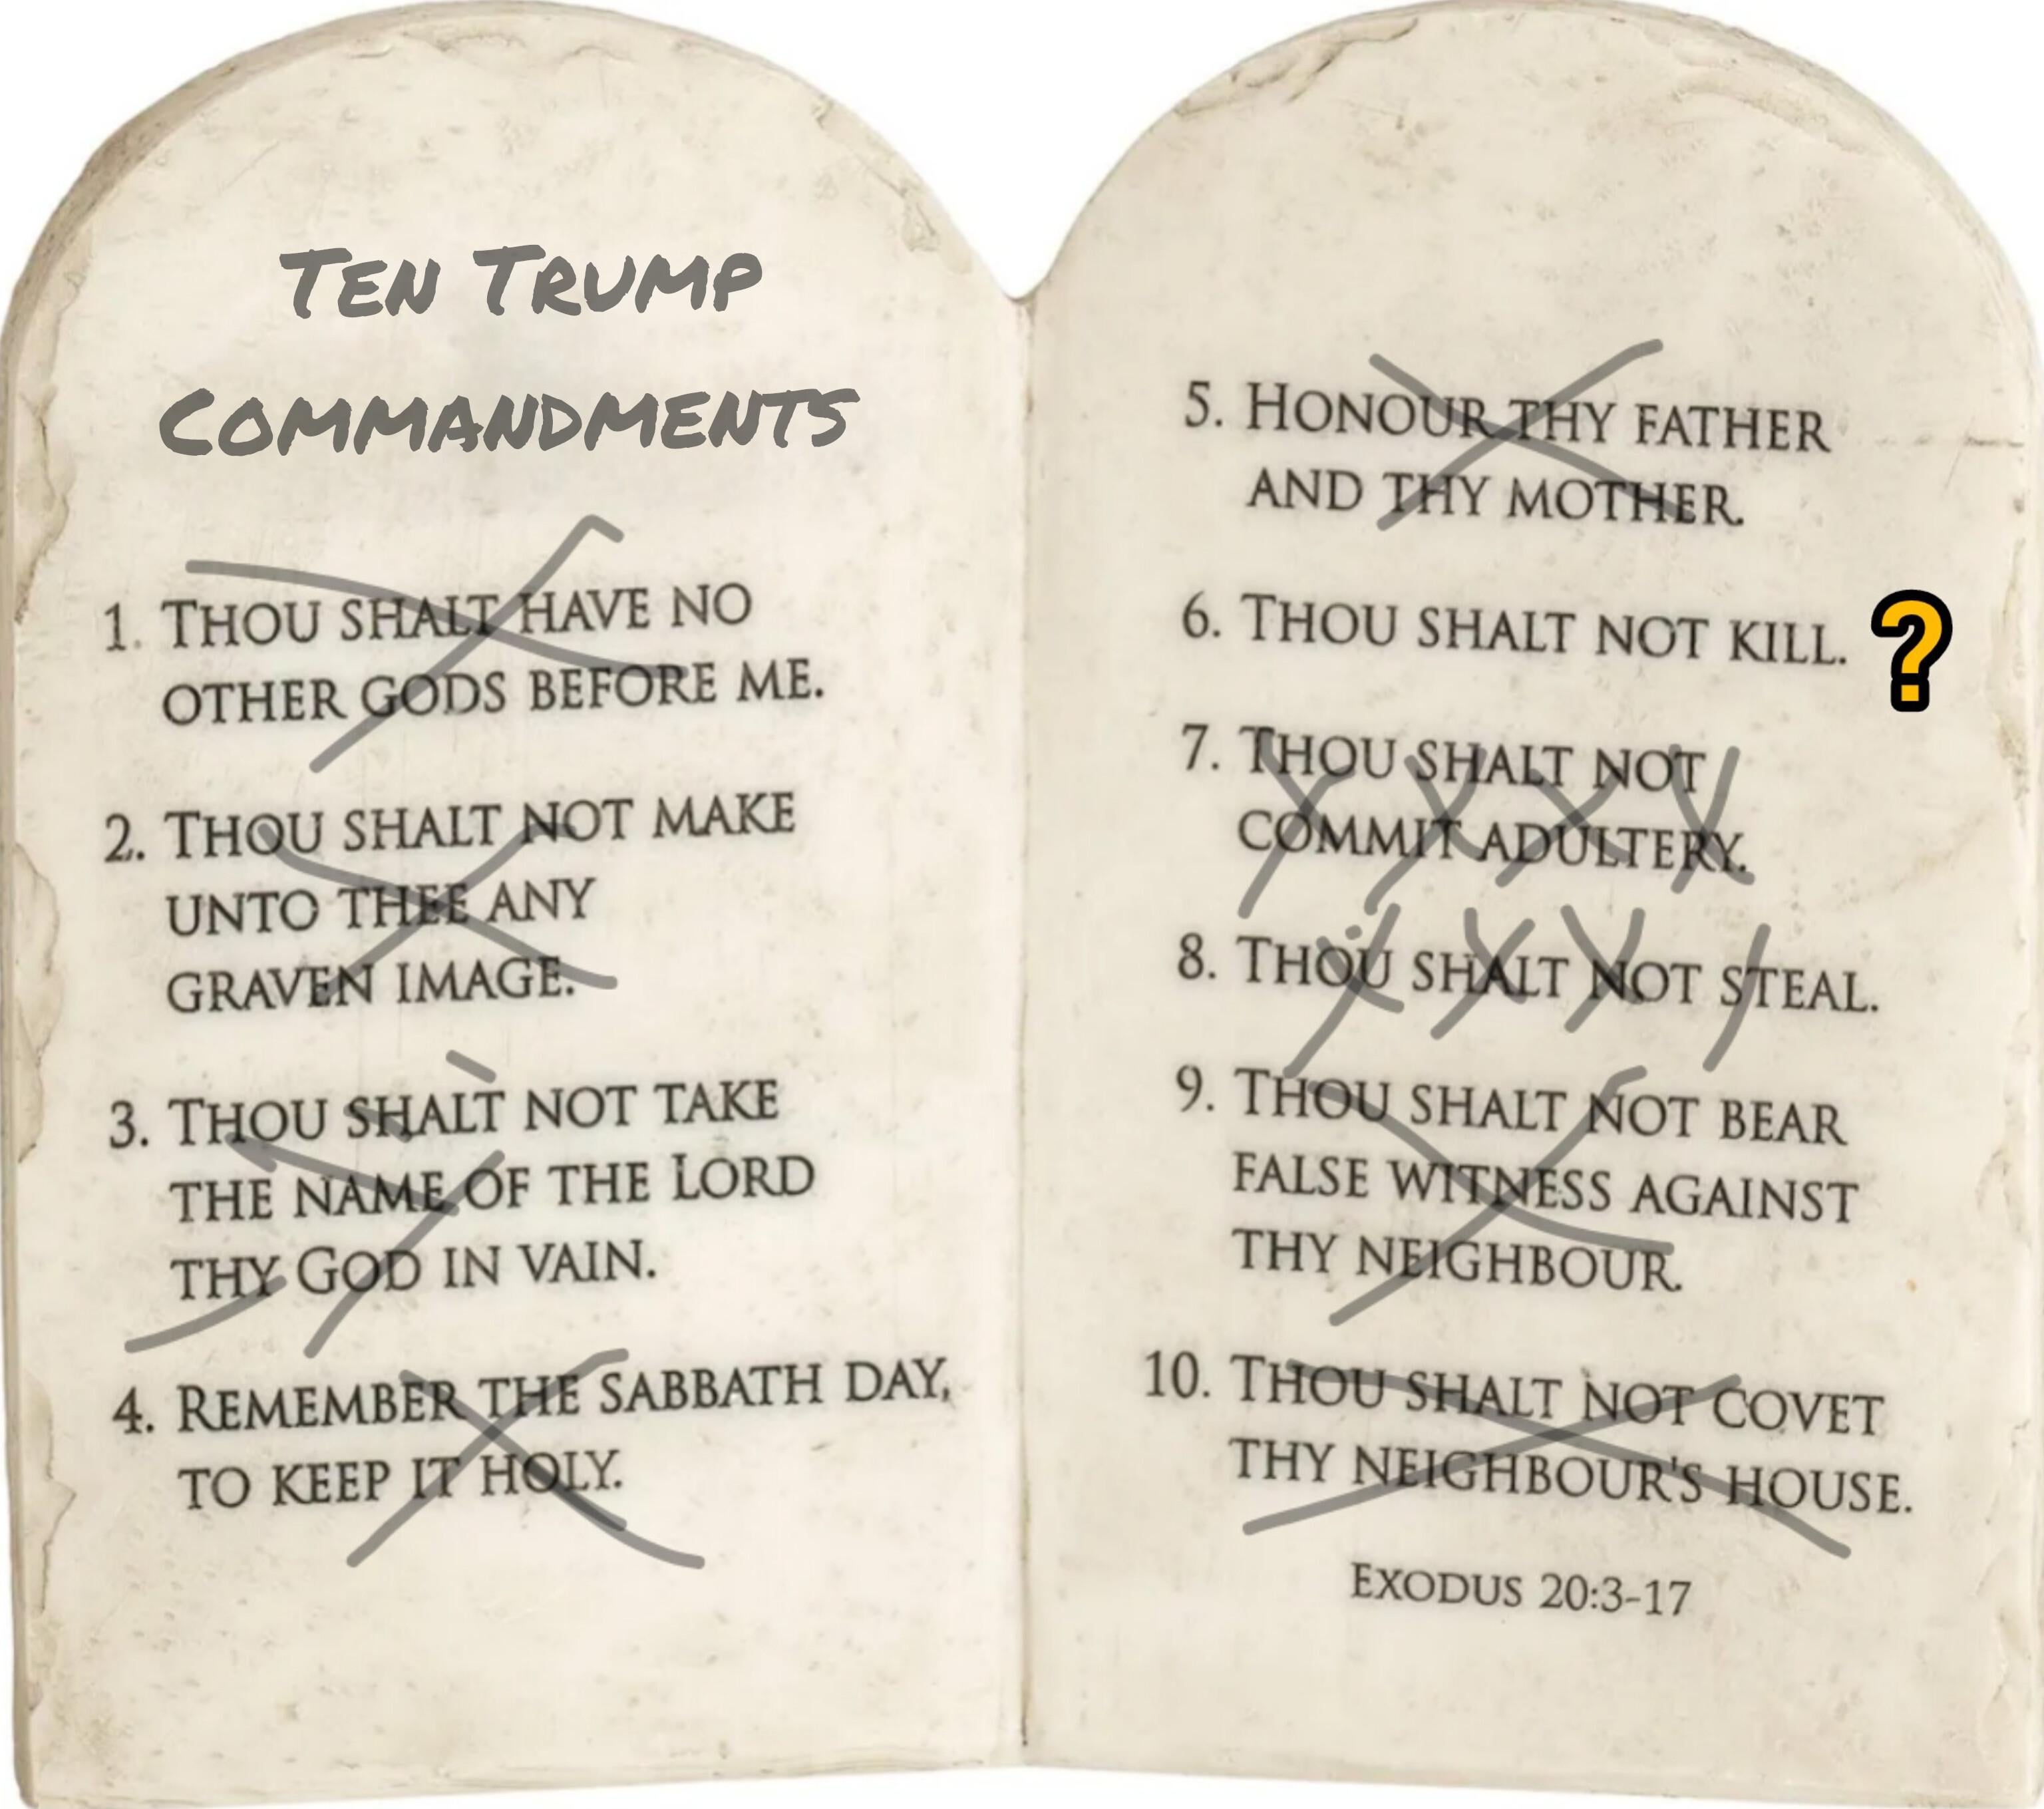 TEN TRUMP
COMMANDMENTS
1. THOU SHALT HAVE NO
OTHER GODS BEFORE ME.
2. THOU SHALT NOT MAKE
UNTO THEE ANY
GRAVEN IMAGE.
3. THOU SHALT NOT TAKE
THE NAME OF THE LORD
THY GOD IN VAIN.
4. REMEMBER THE SABBATH DAY,
TO KEEP IT HOLY.
5. HONOUR THY FATHER
AND THY MOTHER.
6. THOU SHALT NOT KILL. ?
7. THOU SHALT NOT
COMMIT ADULTERY.
8. THOU SHALT NOT STEAL.
9. THOU SHALT NOT BEAR
FALSE WITNESS AGAINST
THY NEIGHBOUR.
10. THOU SHALT NOT COVET
THY NEIGHBOUR'S HOUSE.
EXODUS 20:3-17